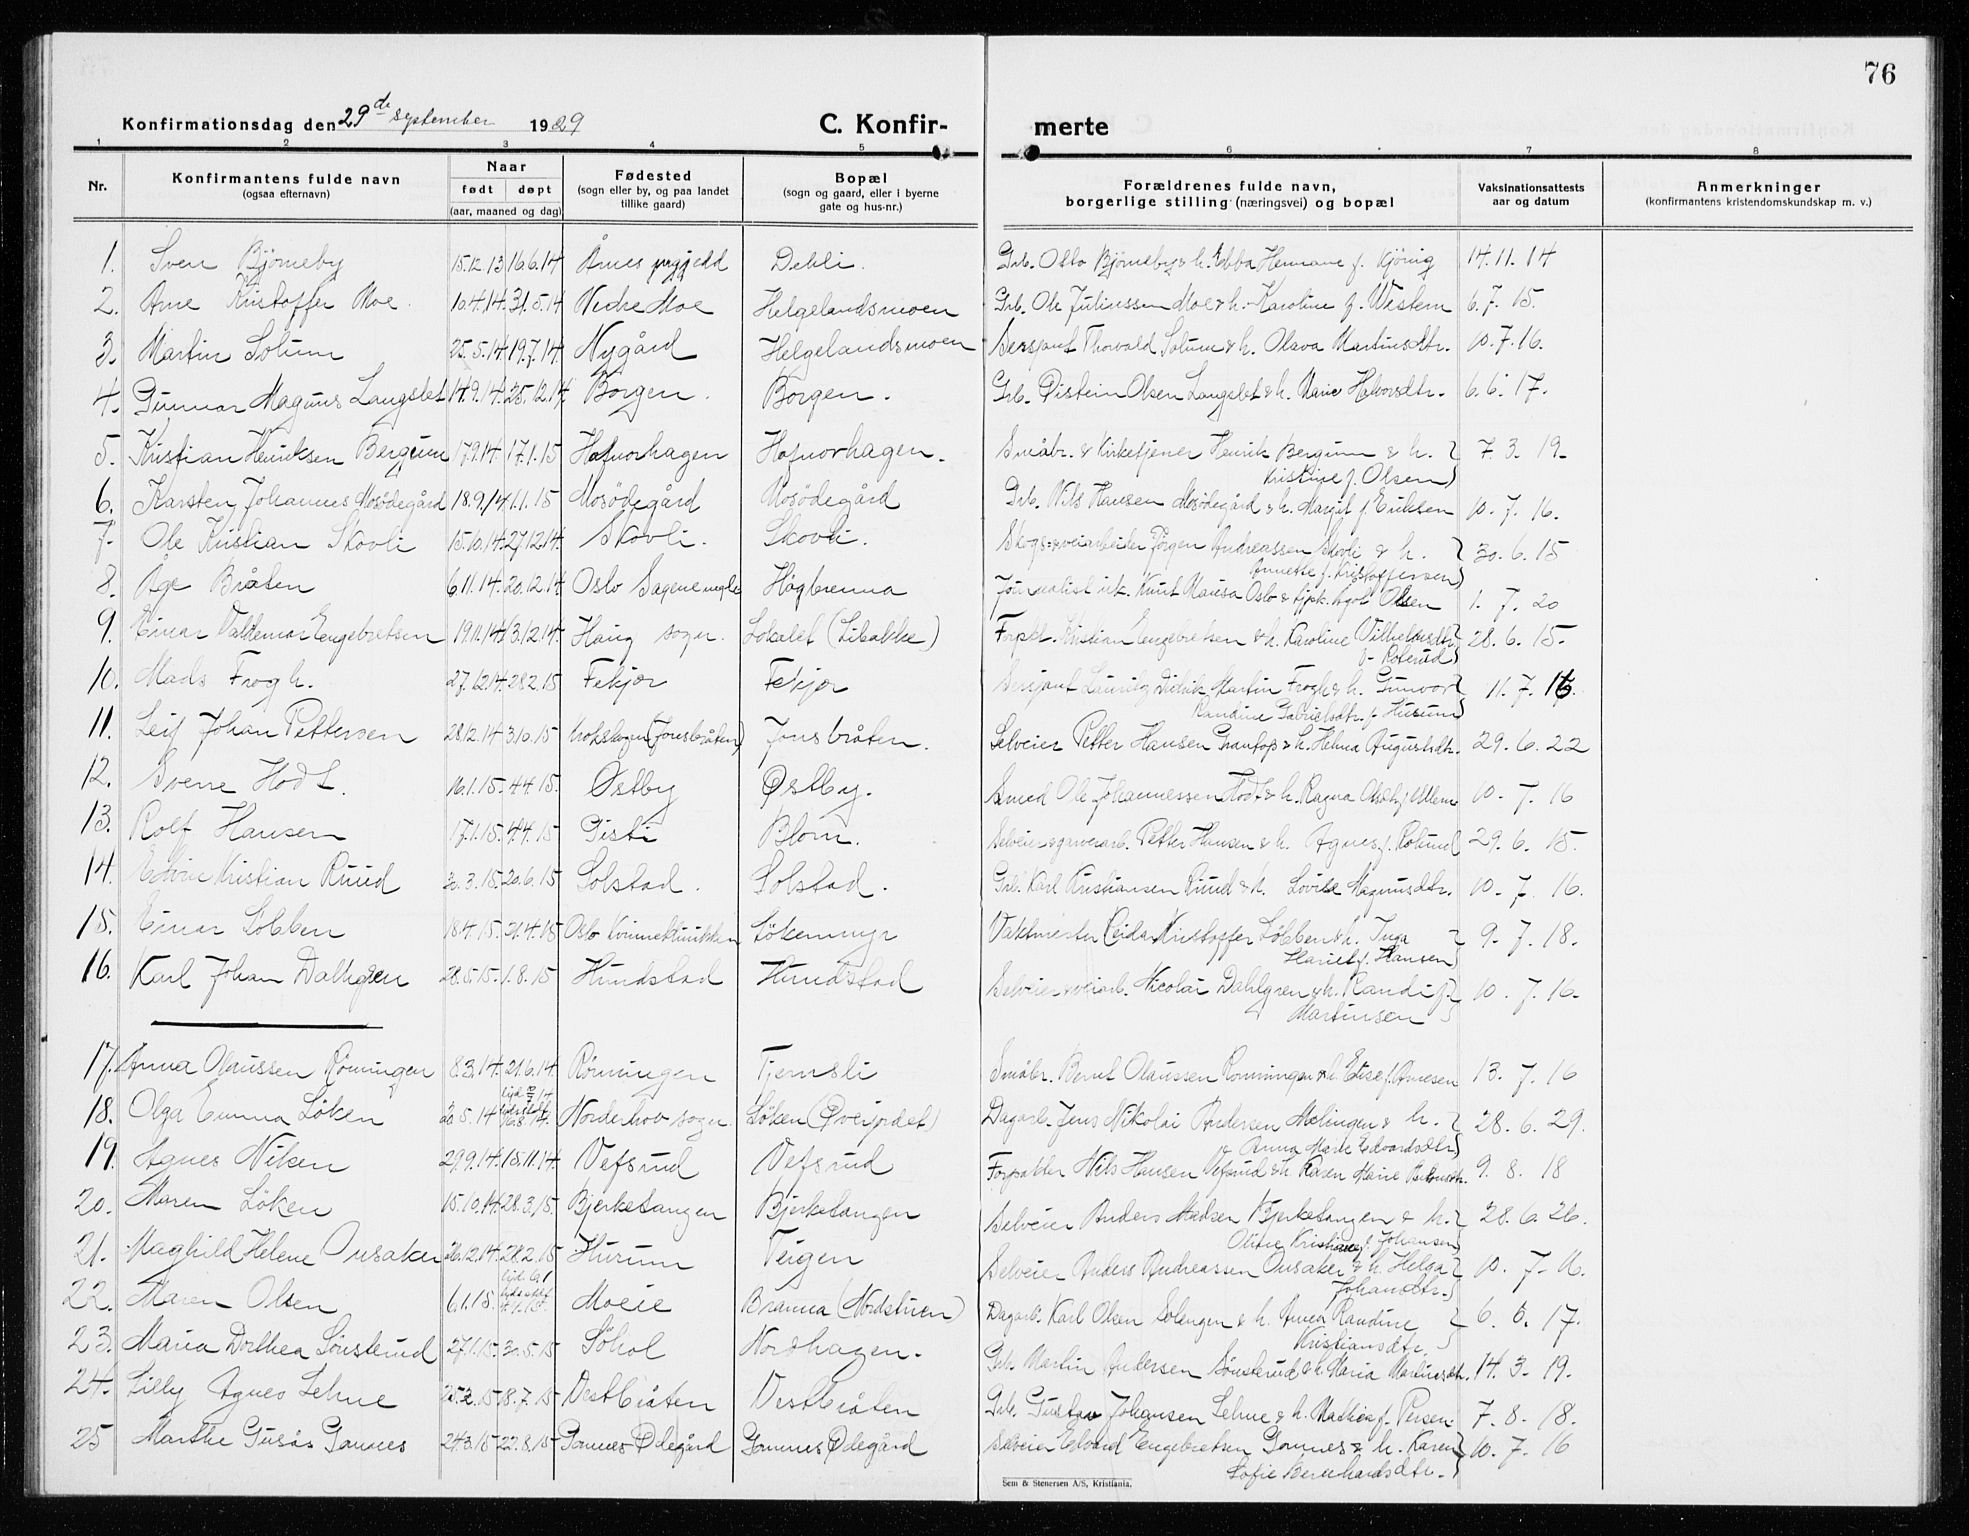 76
Konfirmationsdag den 29de september 1929
C. Konfir-
merte
1 2 3 4 5 6 7 8
Nr.
Konfirmantens fulde navn
(ogsaa efternavn)
Naar
født døpt
(aar, maaned og dag)
Fødested
(sogn eller by, og paa landet
tillike gaard)
Bopæl
(sogn og gaard, eller i byerne
gate og hus-nr.)
Forældrenes fulde navn,
borgerlige stilling (næringsvei) og bopæl
Vaksinationsattests
aar og datum
Anmerkninger
(konfirmantens kristendomskundskap m. v.)
1. Sven Bjørneby 15.12.13 16.6.14 Årnes Dehli. Grb. Otto Bjørneby & h. Ebba Hermane f. 14.11.14
2. Arne Kristoffer Moe. 10.4.14 31.5.14 Nedre Moe Helgelandsmoen Grb. Ole Juliussen Moe & h. Karoline f. Western 6.7.15.
3. Martin Solum 25.5.14 19.7.14 Nygård Helgelandsmoen Sersjant Thorvald Solum & h. Olava Martinsdtr. 10.7.16.
4. Gunnar Magnus Langslet 14.9.14 25.12.14 Borgen. Borgen. Grb. Øistein Olsen Langslet & h. Marie Halvorsdtr. 6.6.17.
5. Kristian Henriksen Bergum 17.9.14. 17.1.15 Hofnorhagen Hofnorhagen. Småbr. & Kirketjener Henrik Bergum & h. 7.3.19.
Kristine f. Olsen
6. Karsten Johannes Mosødegård 18.9.14 1.1.15 Mosødegård Mosødegård Grb. Nils Hansen Mosødegård & h. Margit f. Eriksen 10.7.16.
7. Ole Kristian Skovli 15.10.14 27.12.14. Skovli. Skovli. Skogs- & veiarbeider Jørgen Andreassen Skovli & h. 30.6.15
Annette f. Kristoffersen
8. Åge Bråten 6.11.14. 20.12.14 Oslo Sagene Høgbrenna Journalist Knut Oslo & Olsen 1.7.20
9. Einar Valdemar Engebretsen 19.11.14 13.12.14. Haug sogn. Løkalet (Libakke) Forp. Kristian Engebretsen & h. Karoline Vilhelmsdtr 28.6.15.
f. Roterud
10. Mads Frogh. 27.12.14. 28.2.15 Fekjær Fekjær Sersjant Lauritz Didrik Martin Frogh & h. Gunvor 11.7.16.
Randine Gabrielsdtr. f. Husum
11. Leif Johan Pettersen 28.12.14. 3.10.15 Krokskogen (Jonsbråten) Jonsbråten. Selveier Petter Hansen Grantop & h. Helma Augustsdtr. 29.6.22
12. Sverre Hodt. 16.1.15. 4.4.15. Østby Østby. Smed Ole Johannessen Hodt & h. Ragna 10.7.16
13. Rolf Hansen 17.1.15. 4.4.15 Gisti Blom. Selveier & garverarb. Petter Hansen & h. Agnes f. Roterud 29.6.15.
14. Edvin Kristian Ruud 30.3.15. 20.6.15 Solstad. Solstad. Grb. Karl Kristiansen Ruud & h. Lovise Magnusdtr. 10.7.16.
15. Einar Løbben 18.4.15. 21.4.15 Oslo Kvinneklinikken Løkenmyr Vaktmester Reidar Kristoffer Løbben & h. Inga 9.7.18.
Hariet f. Hansen
16. Karl Johan Dahlgren 28.5.15. 1.8.15 Hundstad Hundstad Selveier & veiarb. Nicolai Dahlgren & h. Randi f. 10.7.16.
Martinsen
17. Anna Olaussen Rønningen 8.3.14. 21.6.14. Rønningen Tjernsli Småbr. Bernt Olaussen Rønningen & h. Elise f. Arnesen 13.7.16
18. Olga Emma Løken 20.5.14 16.8.14. Norderhov sogn. Løken (Øveijordet) Dagarb. Jens Nikolai Andersen Mælingen & h. 28.6.29.
Anna Marie Edvardsdtr
19. Agnes Viken 29.9.14. 15.11.14 Vefsrud Vefsrud Forpakter Nils Hansen Vefsrud & h. Karen Marie 9.8.18
20. Maren Løken 15.10.14. 28.3.15. Bjerketangen Bjerketangen Selveier Anders Madsen Bjerketangen & h. 28.6.26.
Oline Kristiane f. Johansen
21. Maghild Helene Onsaker 26.12.14. 28.2.15 Hurum Teigen Selveier Anders Andreassen Onsaker & h. Helga 10.7.16.
Johansdtr.
22. Maren Olsen 6.1.15. Moeie Branna (Nordstuen) Dagarb. Karl Olsen Solengen & h. Anna Randine 6.6.17.
Kristiansdtr.
23. Maria Dorthea Sønsterud 27.1.15. 30.5.15 Søhol Nordhagen. Grb. Martin Andersen Sønsterud & h. Maria Martinsdtr. 14.3.19.
24. Lilly Agnes Lehne 25.2.15 18.7.15 Vestbråten Vestbråten Grb. Gustav Johansen Lehne & h. Mathea f. Persen 7.8.18.
25 Marthe Guså Gomnes 24.3.15 22.8.15 Gomnes Ødegård Gomnes Ødegård Selveier Edvard Engebretsen Gomnes & h. Karen 10.7.16
Sofie Bernhardsdtr.
Sem & Stenersen A/S, Kristiania.